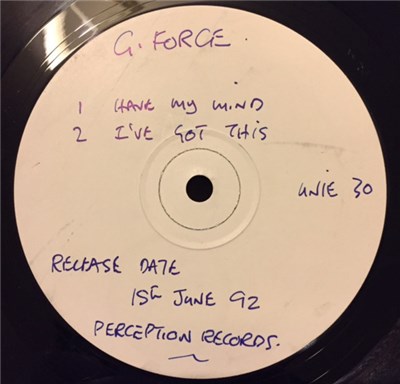 G. FORCE.
1 HAVE MY MIND
2 I'VE GOT THIS
UNIE 30
RELEASE DATE
1St JUNE 92
PERCEPTION RECORDS.